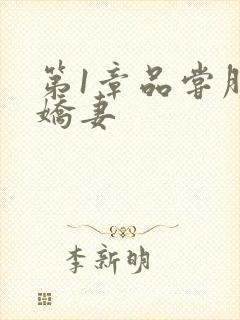 第1章品尝
娇妻
李新明